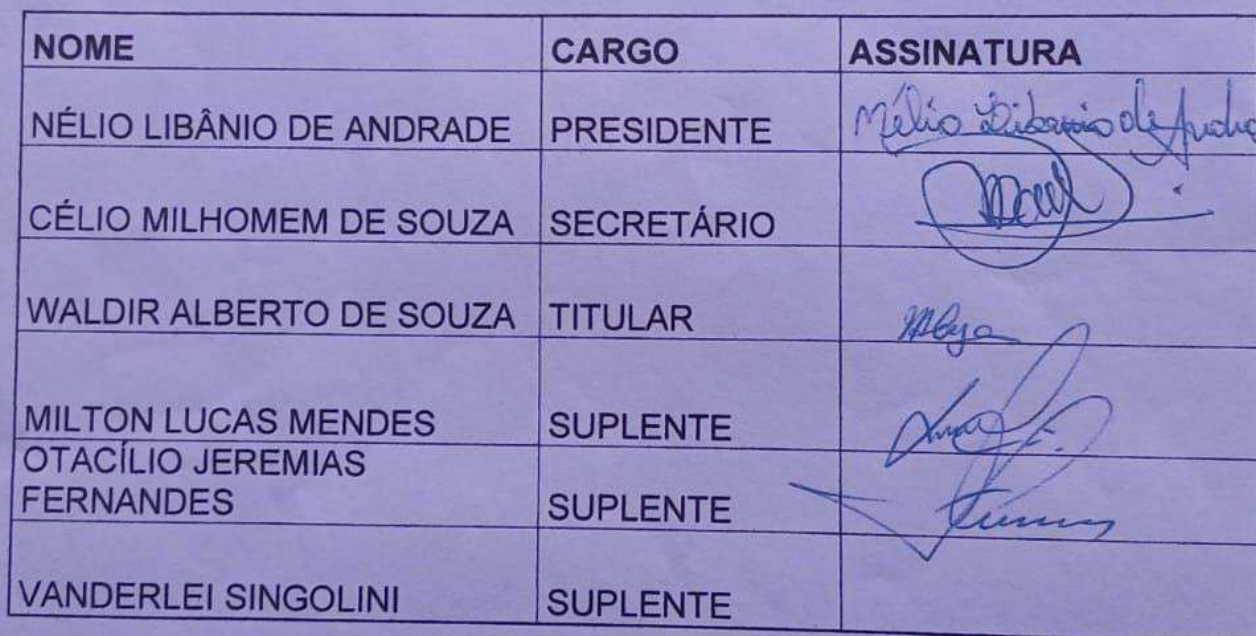 NOME CARGO ASSINATURA
NÉLIO LIBÂNIO DE ANDRADE PRESIDENTE Nélio Libanio de Andra
CÉLIO MILHOMEM DE SOUZA SECRETÁRIO
WALDIR ALBERTO DE SOUZA TITULAR
MILTON LUCAS MENDES SUPLENTE
OTACÍLIO JEREMIAS
FERNANDES SUPLENTE
VANDERLEI SINGOLINI SUPLENTE